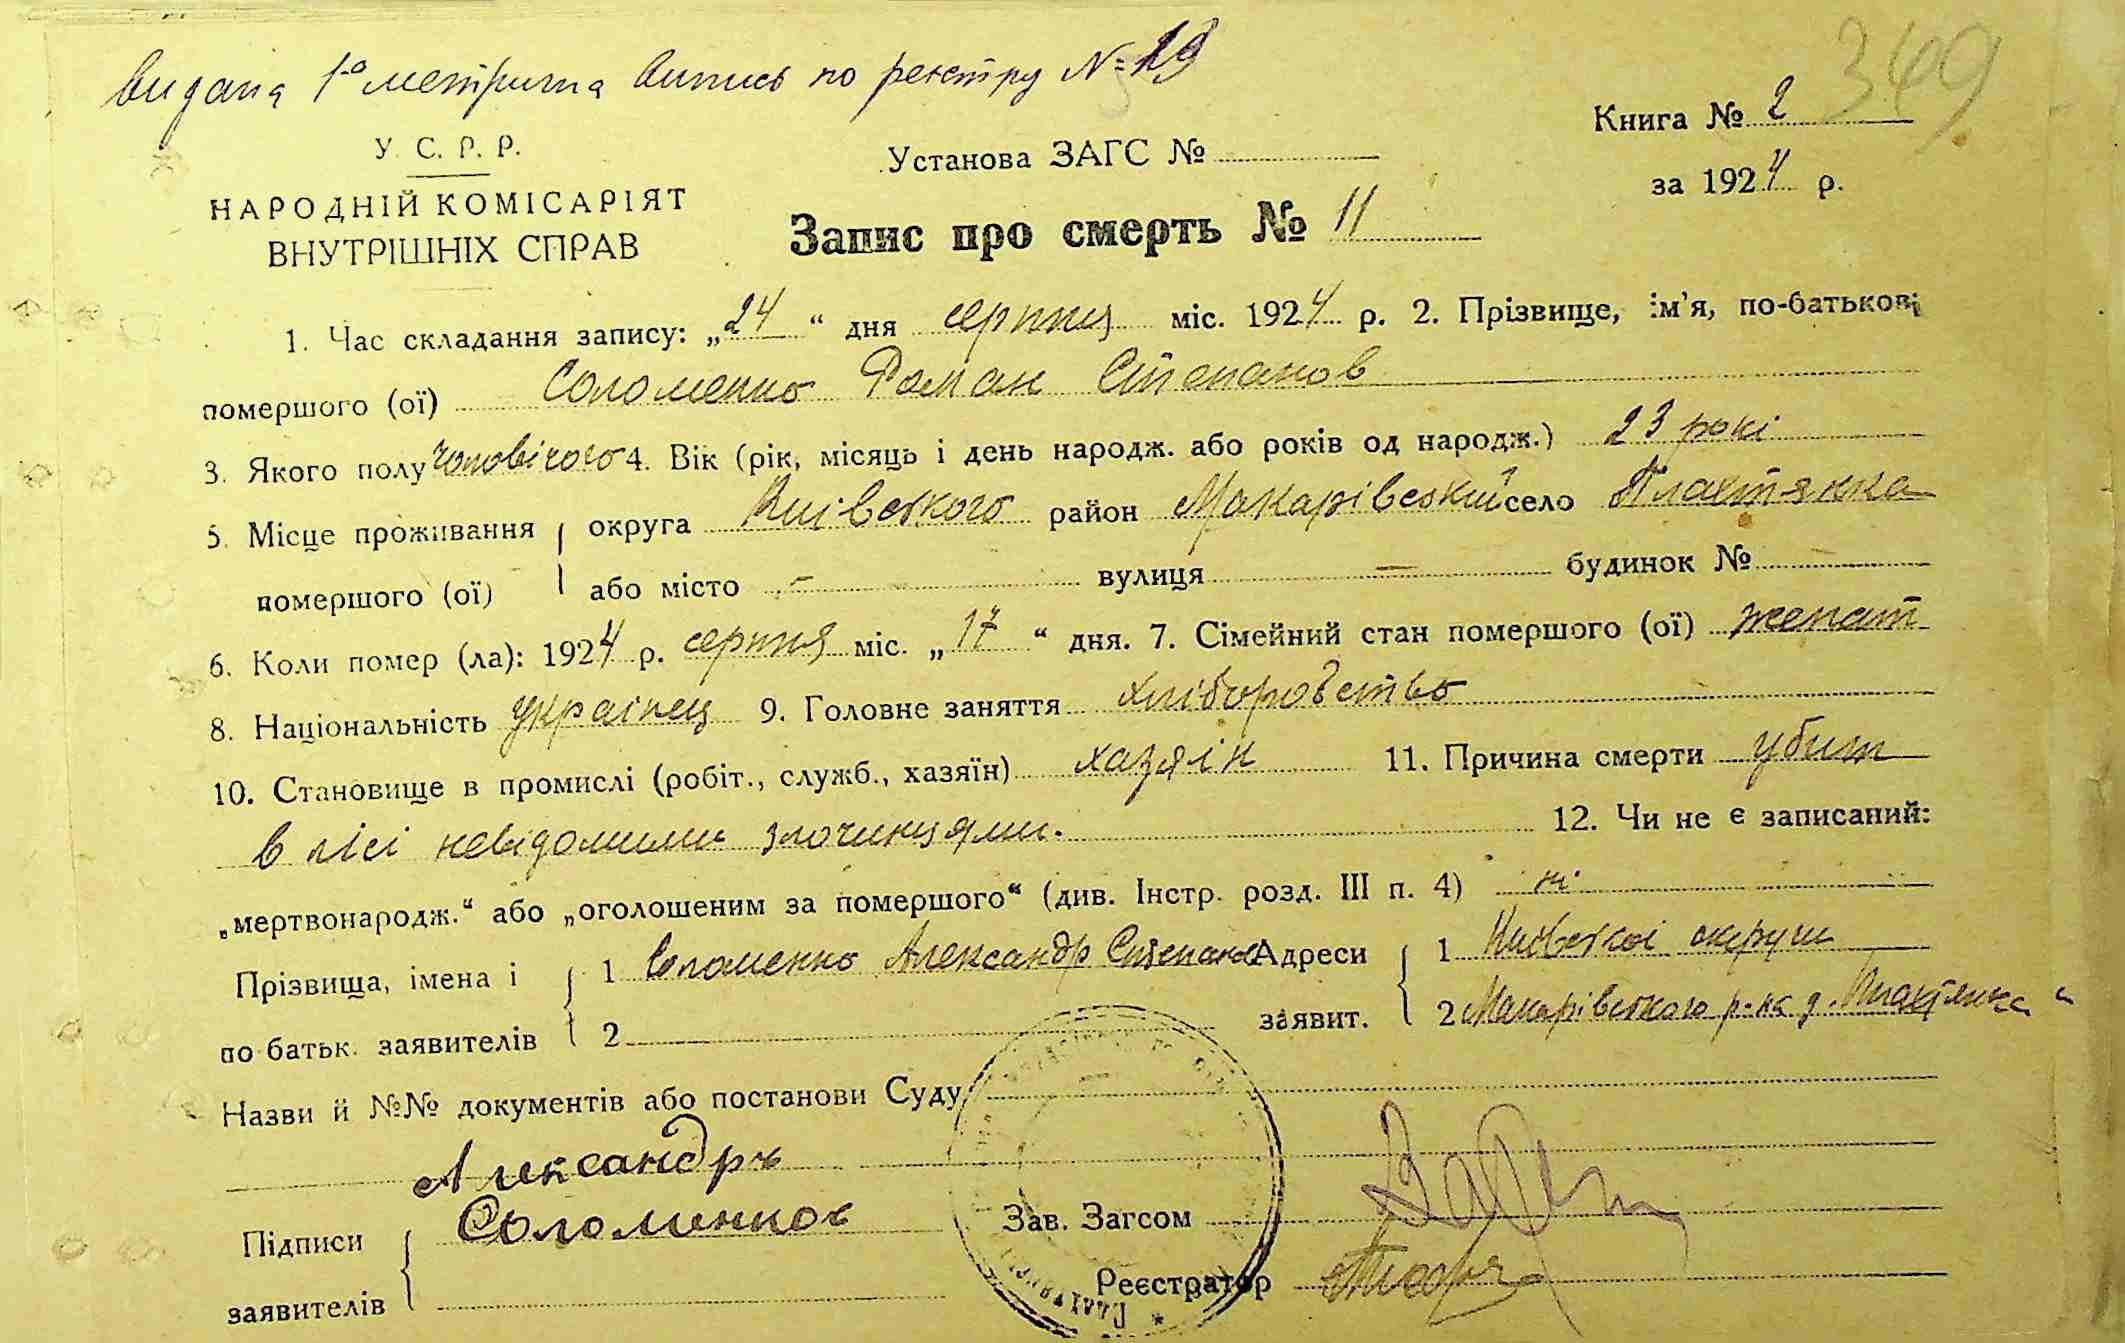 Видана 1-а метрична випись по реєстру № 19
349
У. С. Р. Р.
НАРОДНІЙ КОМІСАРІЯТ
ВНУТРІШНІХ СПРАВ
Установа ЗАГС №
Книга № 2
за 1924 р.
Запис про смерть № 11
1. Час складання запису: „24“ дня серпня міс. 1924 р. 2. Прізвище, ім’я, по-батькові
помершого (ої) Соломенко Роман Степанов
3. Якого полу чоловічого 4. Вік (рік, місяць і день народж. або років од народж.) 23 рокі
5. Місце проживання округа Київського район Макарівський село Плахтянка
помершого (ої) або місто – вулиця – будинок №
6. Коли помер (ла): 1924 р. серпня міс. „17“ дня. 7. Сімейний стан помершого (ої) женат
8. Національність українец 9. Головне заняття хліборобство
10. Становище в промислі (робіт., служб., хазяїн) хазяін 11. Причина смерти убит
в лісі невідомими злочинцями. 12. Чи не є записаний:
„мертвонародж.“ або „оголошеним за помершого“ (див. Інстр. розд. III п. 4) ні
Прізвища, імена і 1 Соломенко Александр Степанов Адреси 1 Київської округи
по батьк. заявителів 2 заявит. 2 Макарівського р-на д. Плахтянка
Назви й №№ документів або постанови Суду
Александръ
Підписи Соломенков Зав. Загсом
заявителів Реєстратор